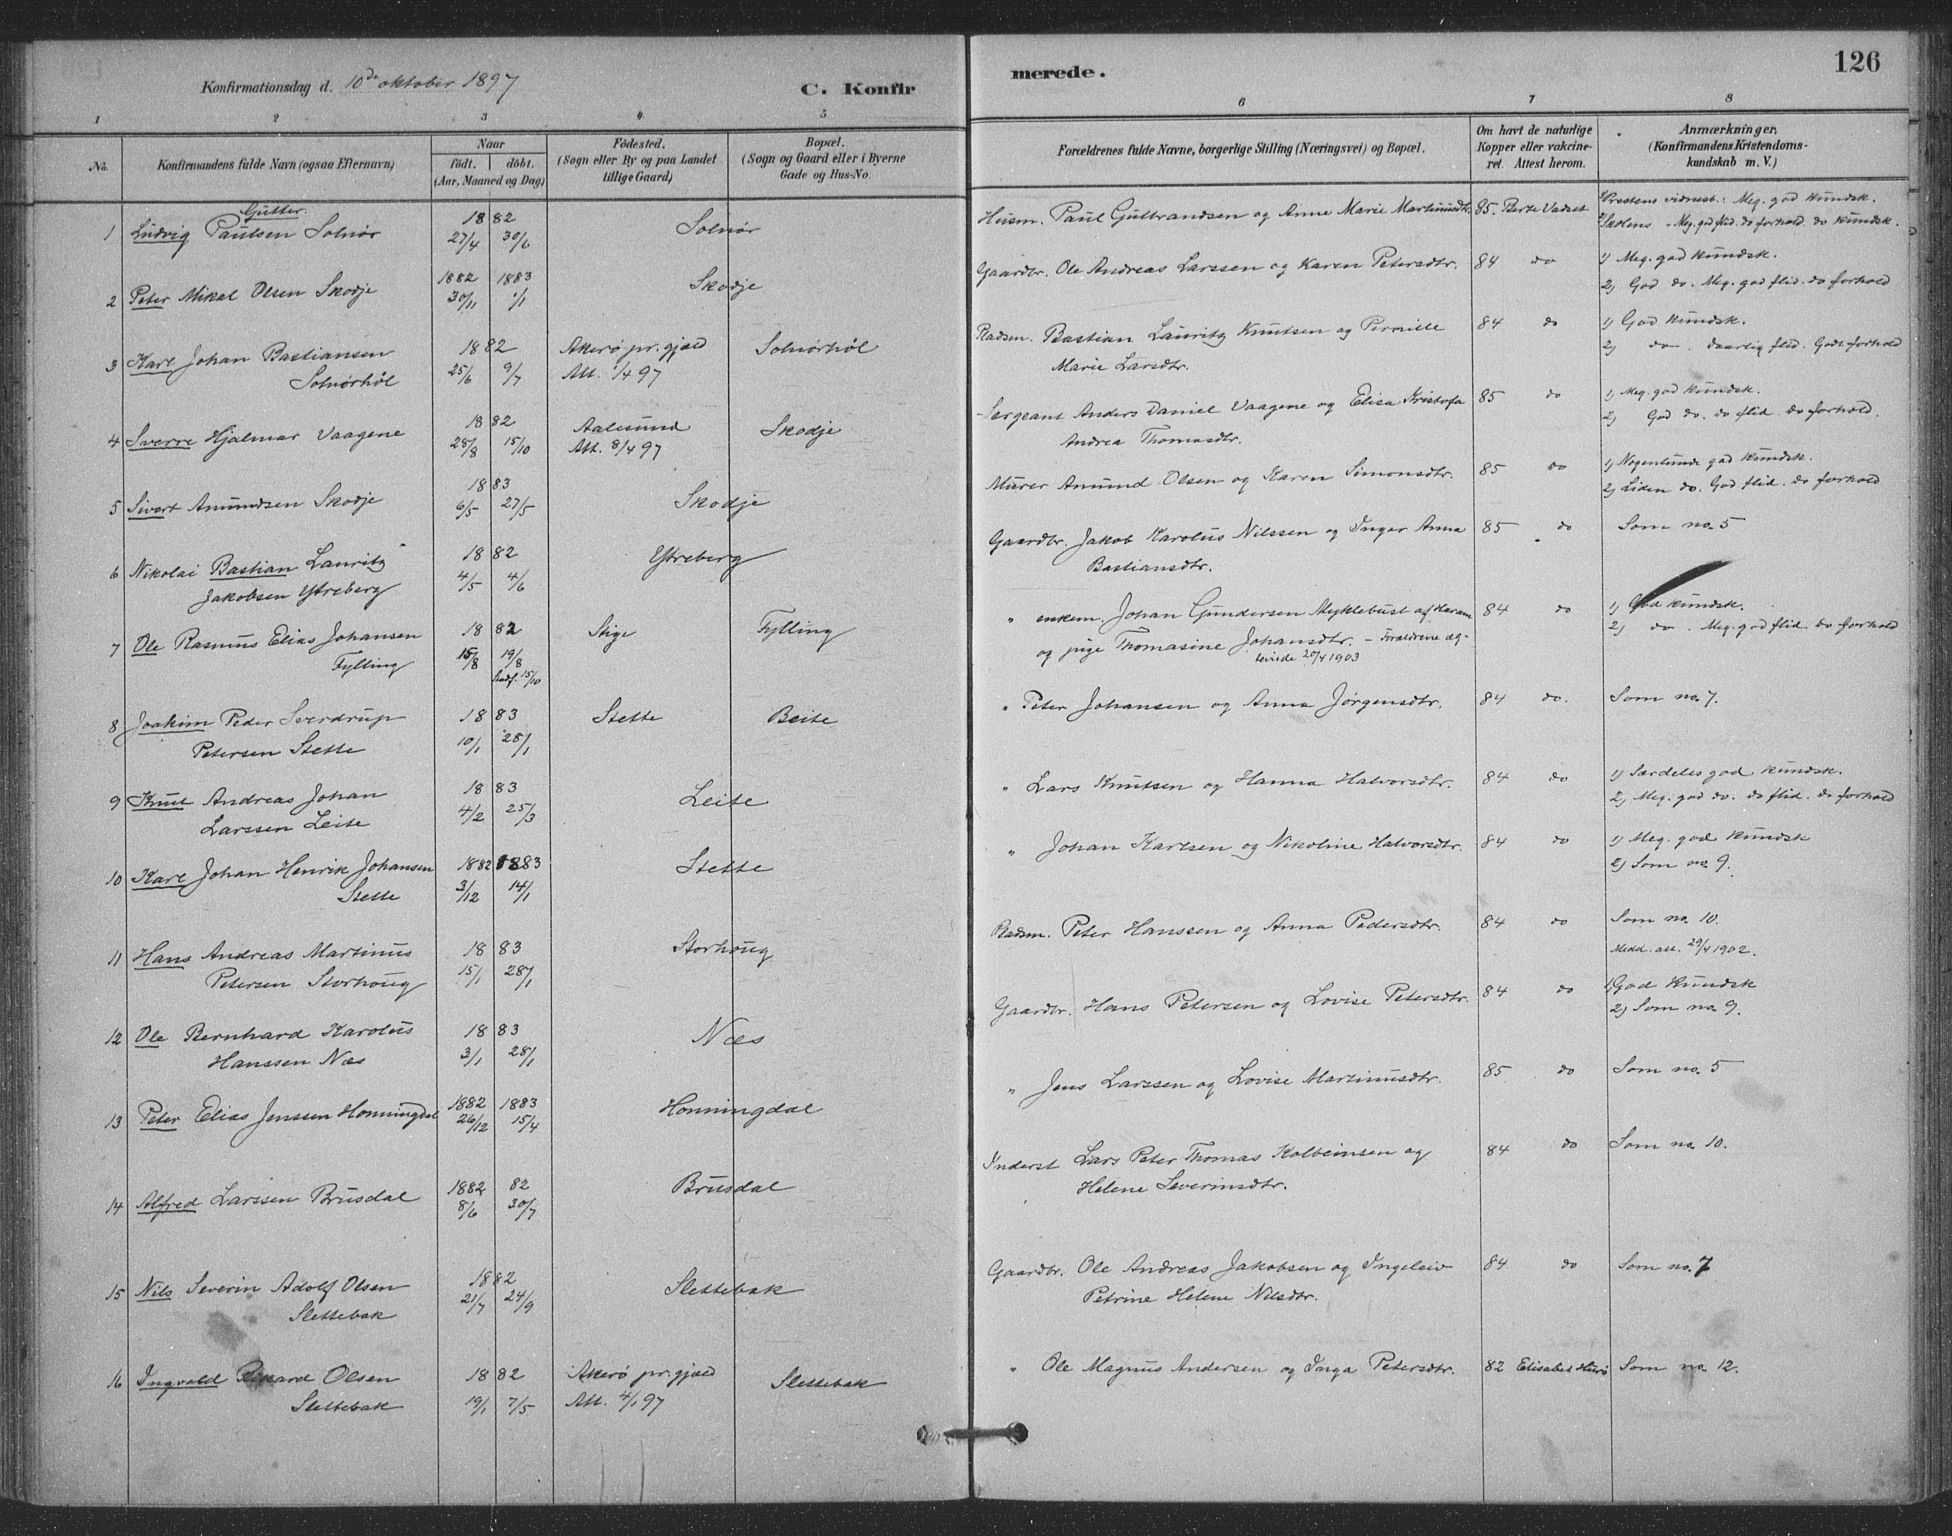 Konfirmationsdag d. 10de oktober 1897
C. Konfir
merede.
126
1 2 3 4 5 6 7 8
No.
Konfirmandens fulde Navn (ogsaa Efternavn)
Naar
födt. döbt.
(Aar, Maaned og Dag)
Födested.
(Sogn eller By og paa Landet
tillige Gaard)
Bopæl.
(Sogn og Gaard eller i Byerne
Gade og Hus-No.
Forældrenes fulde Navne, borgerlige Stilling (Næringsvei) og Bopæl.
Om havt de naturlige
Kopper eller vakcine-
ret. Attest herom.
Anmærkninger,
(Konfirmandens Kristendoms-
kundskab m. V.)
Gutter.
1 Ludvig Paulsen Solnør 1882 27/4 30/6 Solnør Husm. Paul Gulbrandsen og Anne Marie Martinusdtr. 85. Berte Vadset 1) Prestens vidnesb.: Meg. god kundsk.
2) Skolens " Meg. god flid. do forhold. do kundsk.
2 Peter Mikal Olsen Skodje 1882 30/11 1883 1/1 Skodje Gaardbr. Ole Andreas Larssen og Karen Petersdtr. 84 do 1) Meg. god kundsk.
2) God do. Meg. god flid. do forhold
3 Karl Johan Bastiansen 1882 25/6 9/7 Akerø pr.gjæld Solnørhøl Pladsm. Bastian Lauritz Knutsen og Pernille 84 do 1) God kundsk.
Solnørhøl Att. 1/4 97 Marie Larsdtr. 2) do. daarlig flid. Godt forhold
4 Sverre Hjalmar Vaagene 1882 28/8 15/10 Aalesund Skodje Sergeant Anders Daniel Vaagene og Elisa Kristofa 85 do 1) Meg. god kundsk.
Att. 8/4 97 Andrea Thomasdtr. 2) God do. do flid. do forhold.
5 Sivert Amundsen Skodje 1883 6/5 27/5 Skodje Murer Amund Olsen og Karen Simonsdtr. 85 do 1) Nogenlunde god kundsk.
2) Liden do. God flid. do forhold
6 Nikolai Bastian Lauritz 1882 4/5 4/6 Ytreberg Gaardbr. Jakob Karolus Nilssen og Inger Anna 85 do Som no. 5
Jakobsen Ytreberg Bastiansdtr.
7 Ole Rasmus Elias Johansen 1882 15/8 19/8 Stige Fylling " enkem. Johan Gundersen Myklebust af Haram 84 do 1) God kundsk.
Fylling Stadf. 15/10 og pige Thomasine Johansdtr. - Forældrene æg- 2) do. Meg. god flid. do forhold
teviede 20/4 1903
8 Joakim Peder Sverdrup 1883 10/1 28/1 Stette Beite " Peter Johansen og Anna Jørgensdtr. 84 do. Som no. 7.
Petersen Stette
9 Knut Andreas Johan 1883 4/2 25/3 Leite " Lars Knutsen og Hanna Halvorsdtr. 84 do 1) Særdeles god kundsk.
Larssen Leite 2) Meg. god do. do flid. do forhold
10 Karl Johan Henrik Johansen 1882 3/12 1883 14/1 Stette " Johan Karlsen og Nikoline Halvorsdtr. 84 do 1) Meg. god kundsk
Stette 2) Som no 9.
11 Hans Andreas Martinus 1883 15/1 28/1 Storhoug Pladsm. Peter Hanssen og Anna Pedersdtr. 84 do Som no. 10.
Petersen Storhoug Medd. att. 29/4 1902.
12 Ole Bernhard Karolus 1883 3/1 28/1 Næs Gaardbr. Hans Petersen og Lovise Petersdtr. 84 do 1) God kundsk
Hanssen Næs 2) Som no 9.
13 Peter Elias Jenssen Honningdal 1882 26/12 1883 15/4 Honningdal " Jens Larssen og Lovise Martinusdtr. 85 do Som no. 5
14 Alfred Larssen Brusdal 1882 8/6 82 30/7 Brusdal Inderst Lars Peter Thomas Kolbeinsen og 84 do Som no. 10.
Helene Severinsdtr.
15 Nils Severin Adolf Olsen 1882 21/7 24/9 Slettebak Gaardbr. Ole Andreas Jakobsen og Ingeleiv 84 do Som no. 7
Slettebak Petrine Helene Nilsdtr.
16 Ingvald Rikard Olsen 1882 19/1 7/5 Akerø pr.gjæld Slettebak " Ole Magnus Andersen og Inga Petersdtr. 82 Elisabet Som no. 12.
Slettebak Att. 4/1 97